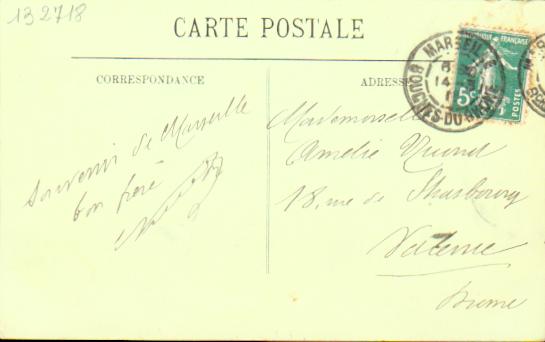 132718
CARTE POSTALE
CORRESPONDANCE
ADRESSE
MARSEILLE
BOUCHES-DU-RHONE
14
5c
POSTES
Souvenir de Marseille
ton frère
Mademoiselle
Amélie
18, rue de Strasbourg
Valence
Drome